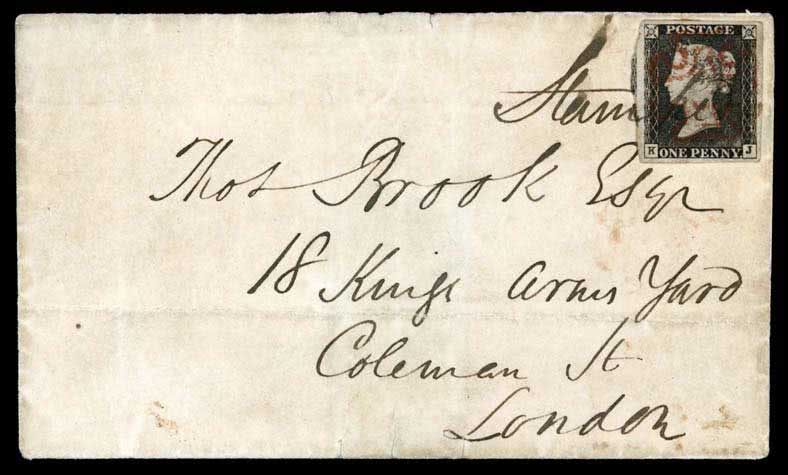 POSTAGE
Stamped
K ONE PENNY J
Thos Brook Esqr
18 Kings Arms Yard
Coleman St
London